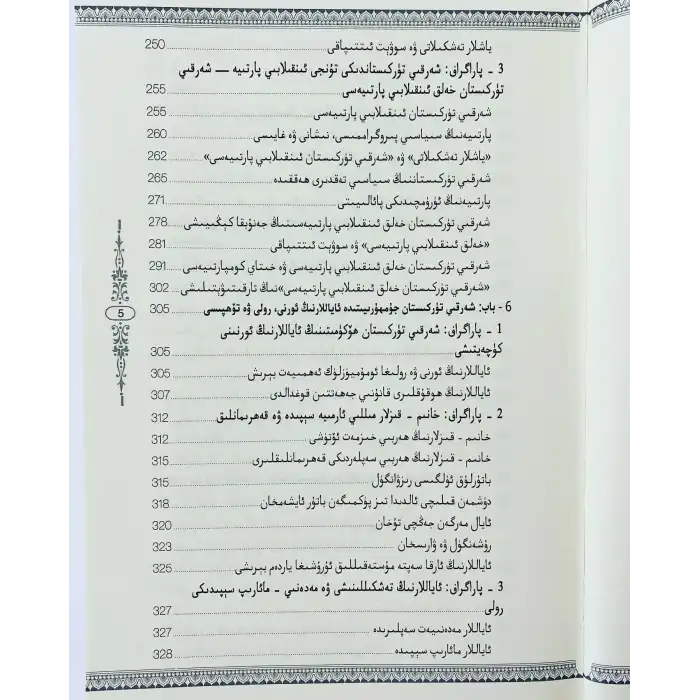 ياشلار تەشكىلاتى ۋە سوۋېت ئىتتىپاقى 250
3 - پاراگراف: شەرقىي تۈركىستاندىكى تۇنجى ئىنقىلابىي پارتىيە — شەرقىي
تۈركىستان خەلق ئىنقىلابىي پارتىيەسى 255
شەرقىي تۈركىستان ئىنقىلابىي پارتىيەسى 255
پارتىيەنىڭ سىياسىي پىروگراممىسى، نىشانى ۋە غايىسى 260
«ياشلار تەشكىلاتى» ۋە «شەرقىي تۈركىستان ئىنقىلابىي پارتىيەسى» 262
شەرقىي تۈركىستاننىڭ سىياسىي تەقدىرى ھەققىدە 265
پارتىيەنىڭ ئۈرۈمچىدىكى پائالىيىتى 271
شەرقىي تۈركىستان خەلق ئىنقىلابىي پارتىيەسىنىڭ جەنۇبقا كېڭىيىشى 278
«خەلق ئىنقىلابىي پارتىيەسى» ۋە سوۋېت ئىتتىپاقى 281
شەرقىي تۈركىستان خەلق ئىنقىلابىي پارتىيەسى ۋە خىتاي كومپارتىيەسى 291
«شەرقىي تۈركىستان خەلق ئىنقىلابىي پارتىيەسى»نىڭ تارقىتىۋېتىلىشى 302
6 - باب: شەرقىي تۈركىستان جۇمھۇرىيىتىدە ئاياللارنىڭ ئورنى، رولى ۋە تۆھپىسى 305
1 - پاراگراف: شەرقىي تۈركىستان ھۆكۈمىتىنىڭ ئاياللارنىڭ ئورنىنى
كۈچەيتىشى 305
ئاياللارنىڭ ئورنى ۋە رولىغا ئومۇميۈزلۈك ئەھمىيەت بېرىش 305
ئاياللارنىڭ ھوقۇقلىرى قانۇنىي جەھەتتىن قوغدالدى 307
2 - پاراگراف: خانىم - قىزلار مىللىي ئارمىيە سېپىدە ۋە قەھرىمانلىق 312
خانىم - قىزلارنىڭ ھەربىي خىزمەت ئۆتۈشى 312
خانىم - قىزلارنىڭ ھەربىي سەپلەردىكى قەھرىمانلىقلىرى 315
باتۇرلۇق ئۈلگىسى رىزۋانگۈل 315
دۈشمەن قىلىچى ئالدىدا تىز پۈكمىگەن باتۇر ئايشەمخان 318
ئايال مەرگەن جەڭچى تۇخان 320
رۇشەنگۈل ۋە ۋارىسخان 323
ئاياللارنىڭ ئارقا سەپتە مۇستەقىللىق ئۇرۇشىغا ياردەم بېرىشى 325
3 - پاراگراف: ئاياللارنىڭ تەشكىللىنىشى ۋە مەدەنىي - مائارىپ سېپىدىكى
رولى 327
ئاياللار مەدەنىيەت سەپلىرىدە 327
ئاياللار مائارىپ سېپىدە 328
5